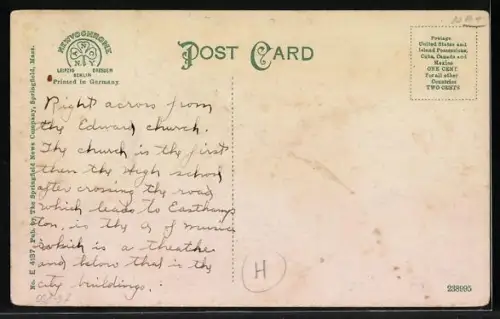 NEWVOCHROME
LEIPZIG DRESDEN
BERLIN
Printed in Germany.
POST CARD
Postage
United States and
Island Possessions,
Cuba, Canada and
Mexico
ONE CENT
For all other
Countries
TWO CENTS
Right across from
the Edward church.
The church is the first
then the High school
after crossing the road
which leads to Easthamp
ton, is the a of music
which is a theathe
and below that is the
city buildings.
H
238995
No. E 4137. Pub. by The Springfield News Company, Springfield, Mass.